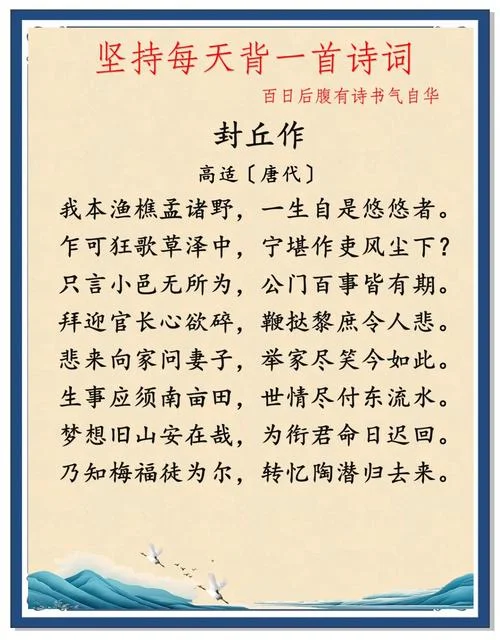 坚持每天背一首诗词
百日后腹有诗书气自华
封丘作
高适〔唐代〕
我本渔樵孟诸野，一生自是悠悠者。
乍可狂歌草泽中，宁堪作吏风尘下？
只言小邑无所为，公门百事皆有期。
拜迎官长心欲碎，鞭挞黎庶令人悲。
悲来向家问妻子，举家尽笑今如此。
生事应须南亩田，世情尽付东流水。
梦想旧山安在哉，为衔君命日迟回。
乃知梅福徒为尔，转忆陶潜归去来。